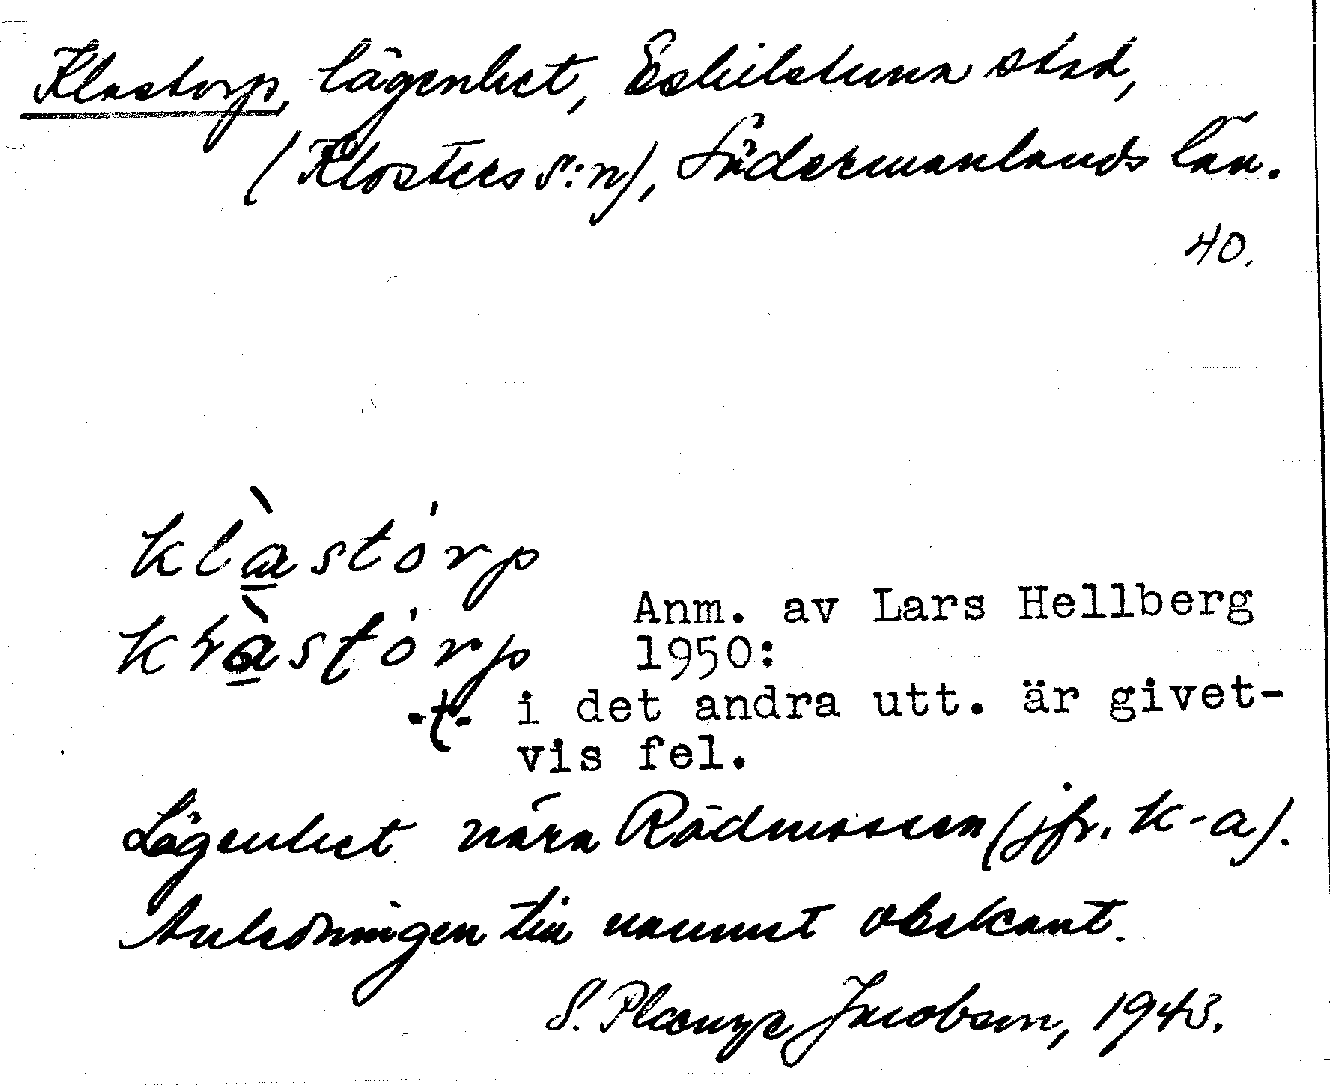 Klastorp, lägenhet, Eskilstuna stad,
(Klosters s:n), Södermanlands län.
40.
klàstórp
klàstórp
Anm. av Lars Hellberg
1950:
-t- i det andra utt. är givet-
vis fel.
Lägenhet nära Rödmossen (jfr. k-a).
Anledningen till namnet obekant.
S. Jacobson, 1943.